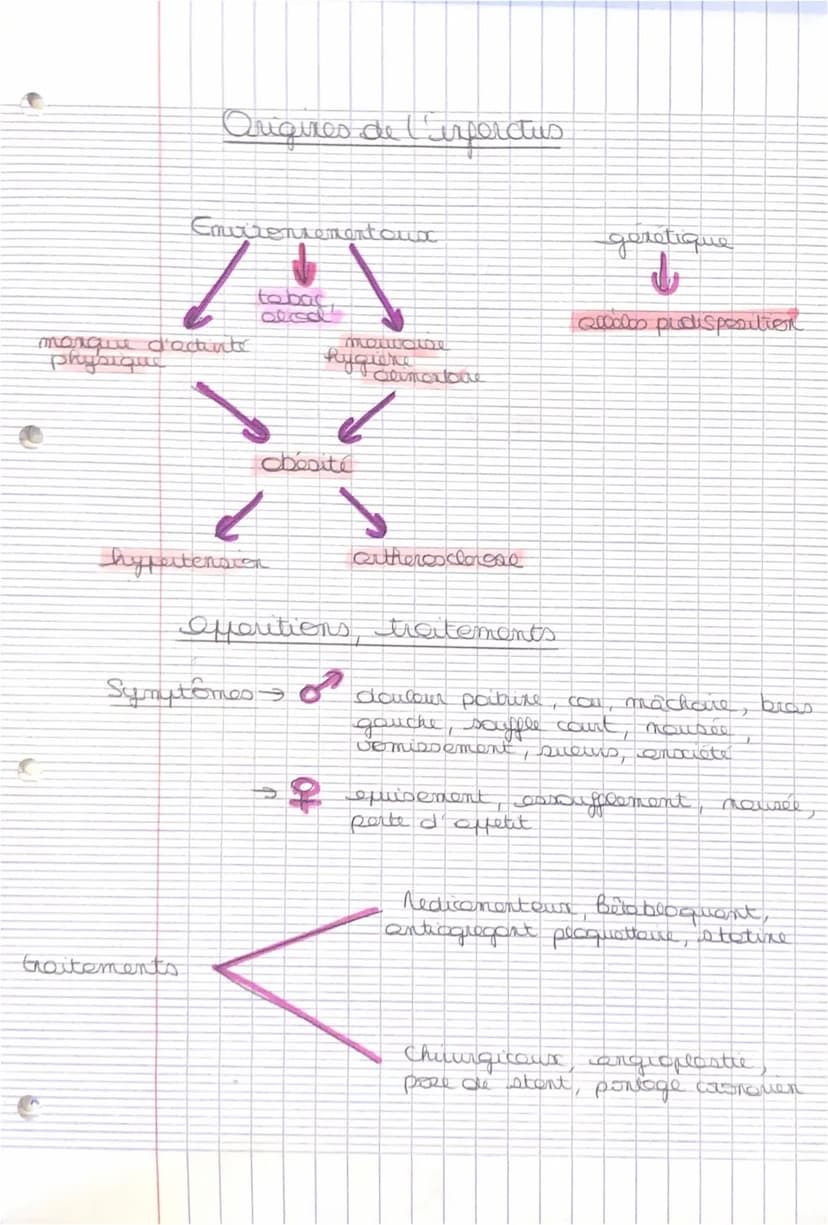 Origines de l'infarctus
Environnementaux
génétique
tabac,
alcool
allèles prédisposition
manque d'activité
physique
mauvaise
hygiène
alimentaire
obésité
hypertension
artherosclerose
apparitions, traitements
Symptômes → ♂ douleur poitrine, cou, mâchoire, bras
gauche, souffle court, nausée,
vomissement, sueurs, anxiété
→ ♀ epuisement, essoufflement, nausée,
perte d'appetit
Medicamenteux, Bêtabloquant,
antiagregant plaquettaire, statine
traitements
Chirurgicaux, angioplastie,
pose de stent, pontage coronarien